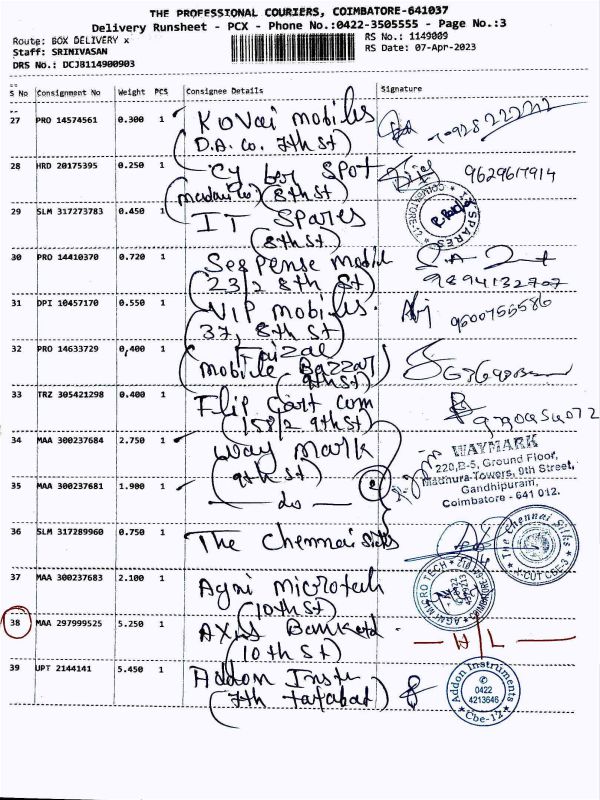 THE PROFESSIONAL COURIERS, COIMBATORE-641037
Delivery Runsheet - PCX - Phone No.:0422-3505555 - Page No.:3
Route: BOX DELIVERY x
RS No.: 1149009
Staff: SRINIVASAN
RS Date: 07-Apr-2023
DRS No.: DCJB114900903
S No Consignment No Weight PCS Consignee Details Signature
27 PRO 14574561 0.300 1 Kovai mobiles
(D.A. Co. 7th St)
28 HRD 20175395 0.250 1 Cyber Spot 9629617914
(8th St)
29 SLM 317273783 0.450 1 IT Spares
(8th St)
30 PRO 14410370 0.720 1 mobil
(23/2 8th St) 9894132707
31 DPI 10457170 0.550 1 VIP mobiles. 9600755586
(37, 8th St)
32 PRO 14633729 0,400 1 Faizal
mobile Bazzar
(9th St)
33 TRZ 305421298 0.400 1 Flip Cart Com
(158/2 9th St)
34 MAA 300237684 2.750 1 Way Mark
(9th St)
WAYMARK
220,B-5, Ground Floor,
Madhura Towers, 9th Street,
Gandhipuram,
Coimbatore - 641 012.
35 MAA 300237681 1.900 1 — do — 2
36 SLM 317289960 0.750 1 The Chennai Silks
The Chennai Silks
37 MAA 300237683 2.100 1 Agni Microtech
(10th St)
AGNI MICRO TECH
38 MAA 297999525 5.250 1 Axis Bank Ltd
(10th St)
39 UPT 2144141 5.450 1 Addon Instu
(7th Tatabad)
Addon Instruments
0422
4213646
Cbe-12